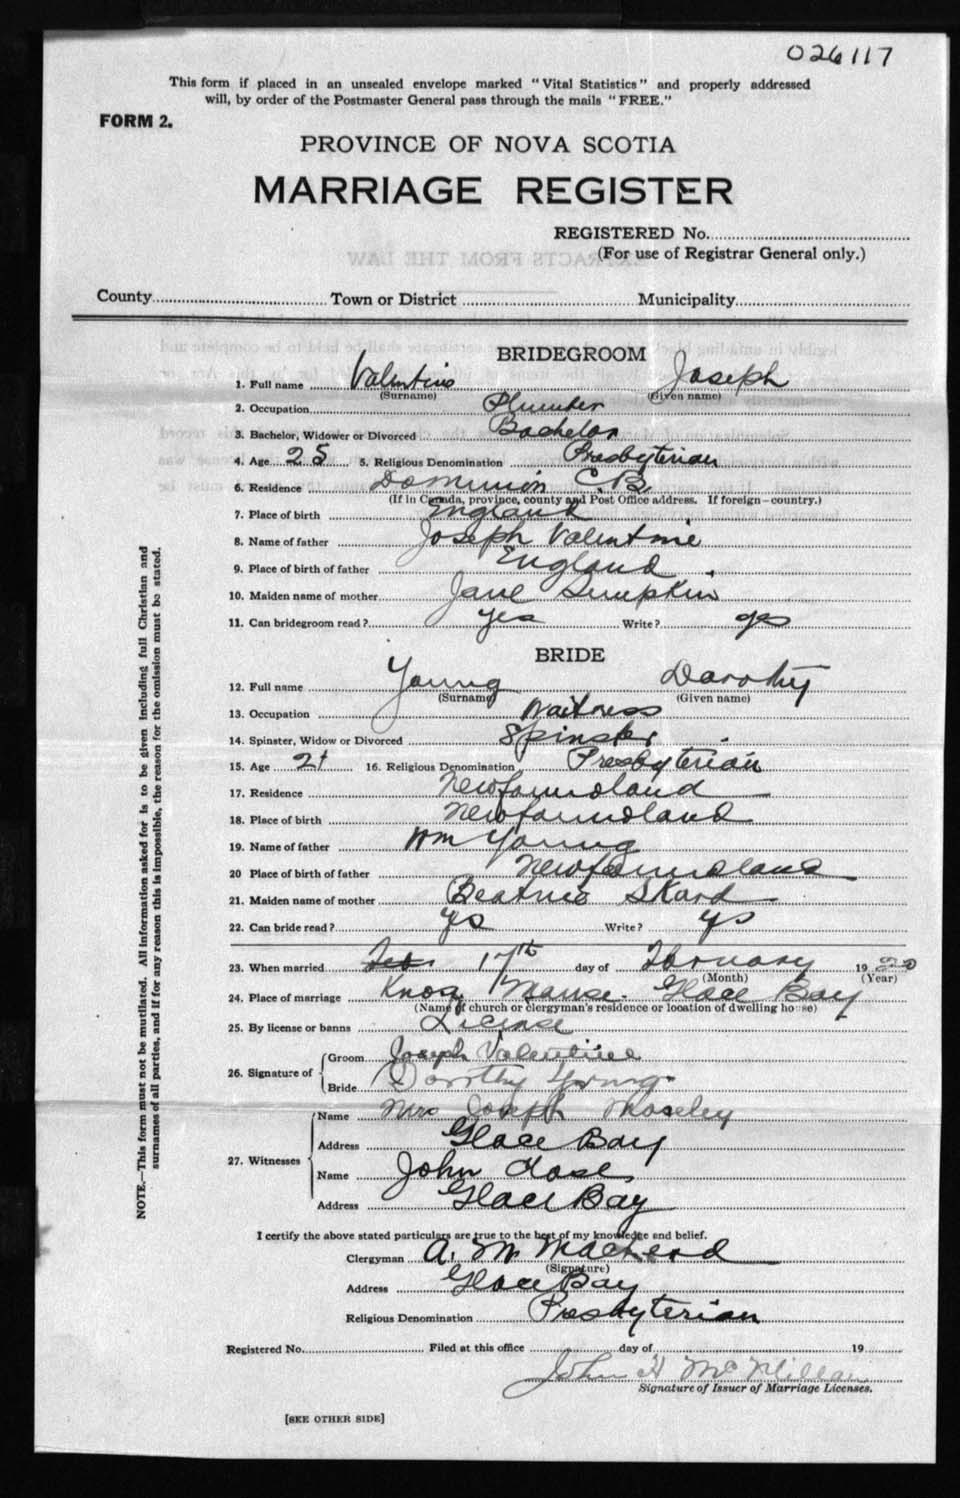 026117
This form if placed in an unsealed envelope marked "Vital Statistics" and properly addressed
will, by order of the Postmaster General pass through the mails "FREE."
FORM 2.
PROVINCE OF NOVA SCOTIA
MARRIAGE REGISTER
REGISTERED No.
(For use of Registrar General only.)
County Town or District Municipality
BRIDEGROOM
1. Full name Valentine Joseph
(Surname) (Given name)
2. Occupation Plumber
3. Bachelor, Widower or Divorced Bachelor
4. Age 25 5. Religious Denomination Presbyterian
6. Residence Dominion C.B.
(If in Canada, province, county and Post Office address. If foreign—country.)
7. Place of birth England
8. Name of father Joseph Valentine
9. Place of birth of father England
10. Maiden name of mother Jane
11. Can bridegroom read? Yes Write? yes
BRIDE
12. Full name Young Dorothy
(Surname) (Given name)
13. Occupation Waitress
14. Spinster, Widow or Divorced Spinster
15. Age 21 16. Religious Denomination Presbyterian
17. Residence Newfoundland
18. Place of birth Newfoundland
19. Name of father Wm Young
20 Place of birth of father Newfoundland
21. Maiden name of mother Beatrice
22. Can bride read? ys Write? ys
23. When married Feb. 17th day of February 1920
(Month) (Year)
24. Place of marriage Knox Manse Glace Bay
(Name of church or clergyman's residence or location of dwelling house)
25. By license or banns License
26. Signature of Groom Joseph Valentine
Bride Dorothy Young
27. Witnesses Name Mrs Joseph Moseley
Address Glace Bay
Name John
Address Glace Bay
I certify the above stated particulars are true to the best of my knowledge and belief.
Clergyman A. M MacLeod
(Signature)
Address Glace Bay
Religious Denomination Presbyterian
Registered No. Filed at this office day of 19
John H McMillan
Signature of Issuer of Marriage Licenses.
[SEE OTHER SIDE]
NOTE.—This form must not be mutilated. All information asked for is to be given including full Christian and
surnames of all parties, and if for any reason this is impossible, the reason for the omission must be stated.